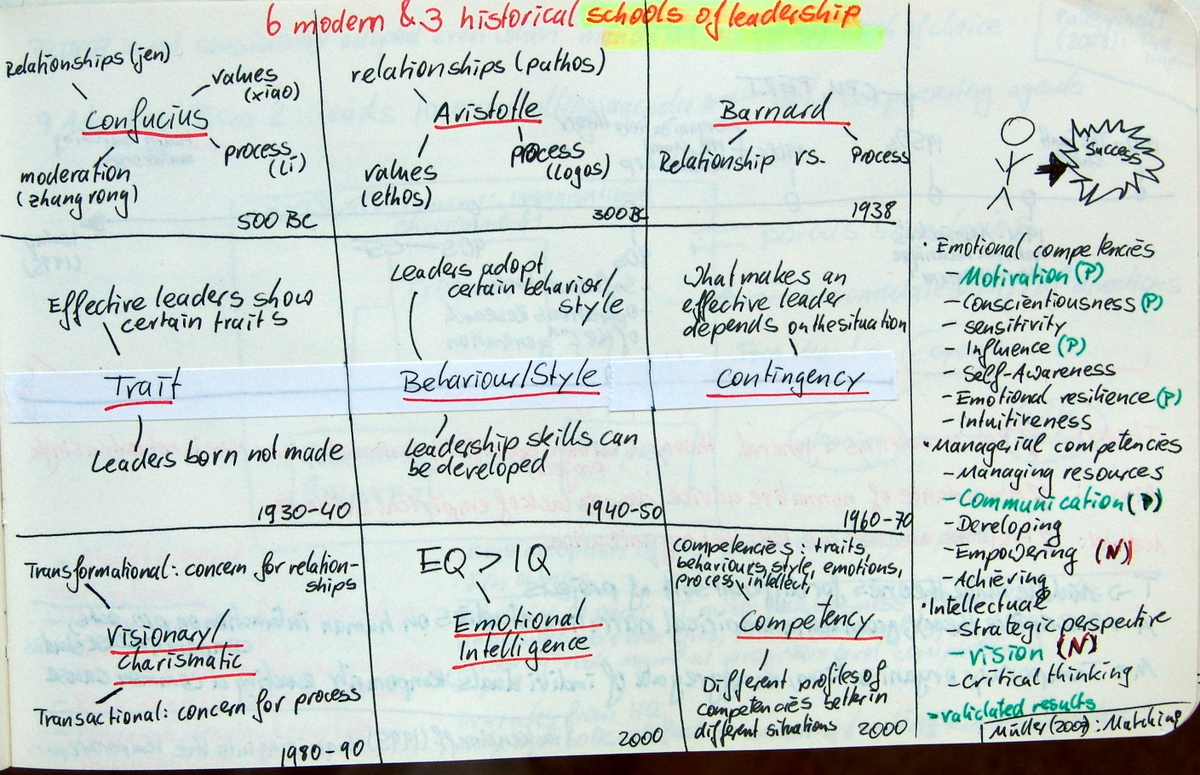 6 modern & 3 historical schools of leadership
Relationships (jen)
values
(xiao)
Confucius
process
(Li)
moderation
(zhang rong)
500 BC
relationships (pathos)
Aristotle
process
(Logos)
values
(ethos)
300 BC
Barnard
Relationship vs. Process
1938
Effective leaders show
certain traits
Trait
Leaders born not made
1930-40
Leaders adopt
certain behavior/
style
Behaviour/Style
Leadership skills can
be developed
1940-50
What makes an
effective leader
depends on the situation
Contingency
1960-70
Transformational: concern for relation-
ships
Visionary/
Charismatic
Transactional: concern for process
1980-90
EQ > IQ
Emotional
Intelligence
2000
Competencies: traits,
behaviours, style, emotions,
process, intellect,
Competency
Different profiles of
competencies better in
different situations
2000
Success
· Emotional competencies
Motivation (P)
- Conscientiousness (P)
- sensitivity
- Influence (P)
- Self-Awareness
- Emotional resilience (P)
- Intuitiveness
· Managerial competencies
- Managing resources
- Communication (P)
- Developing
- Empowering (N)
- Achieving
· Intellectual
- Strategic perspective
- vision (N)
- critical thinking
-> validated results
Müller (2007): Matching